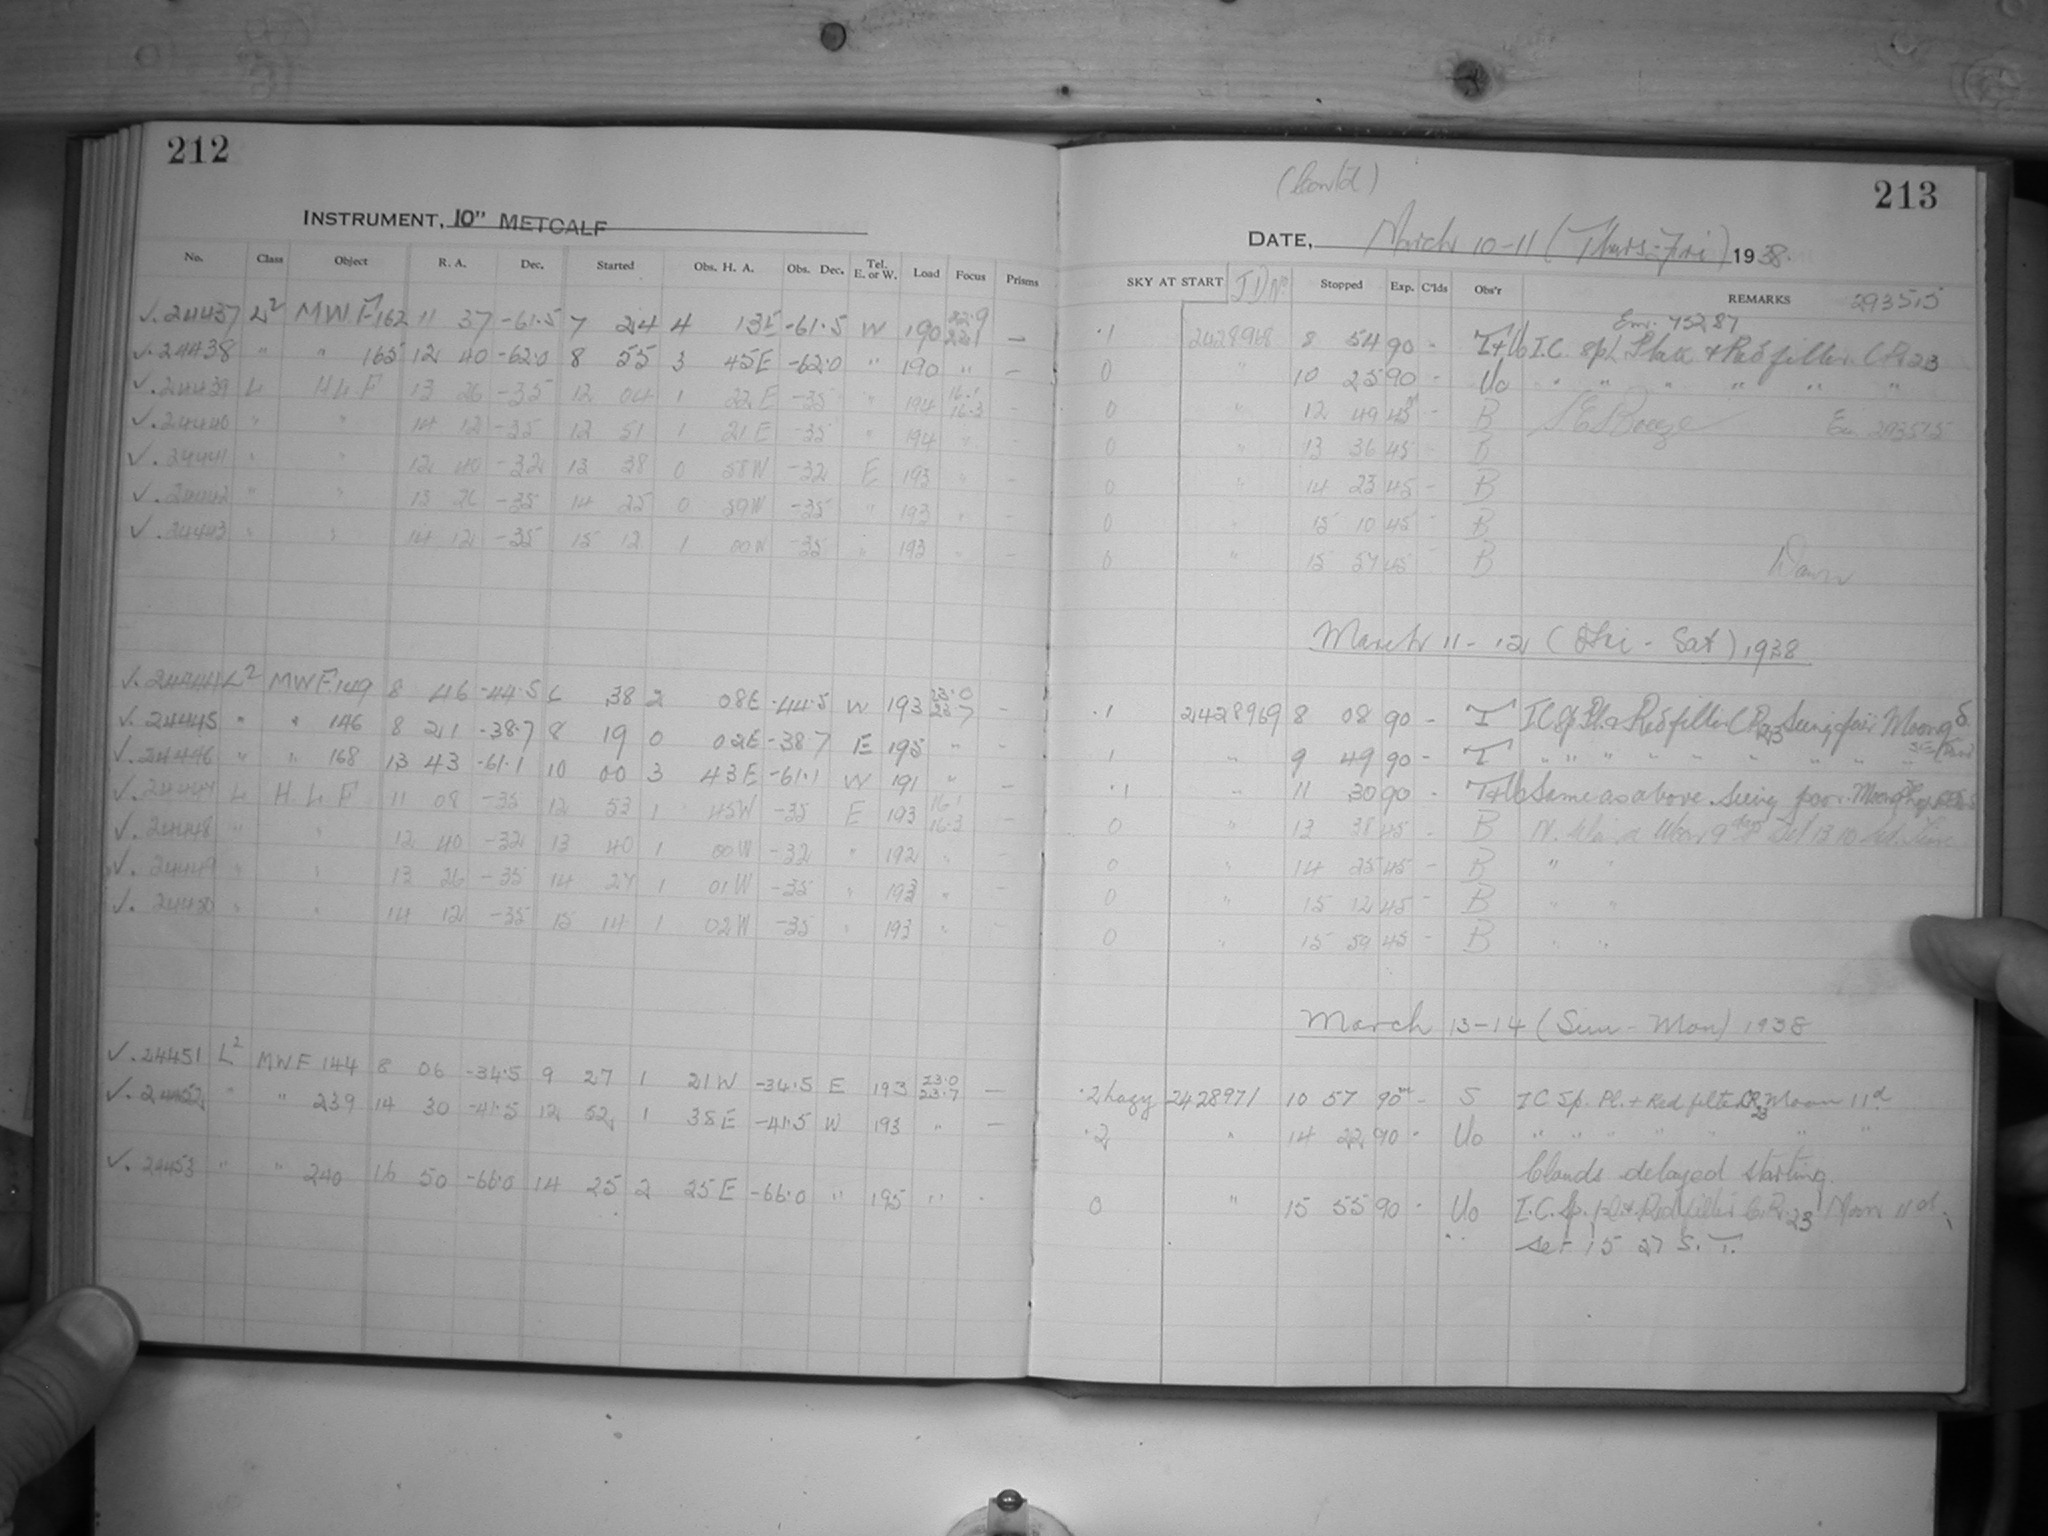 212
INSTRUMENT, 10" METCALF
No. Class Object R. A. Dec. Started Obs. H. A. Obs. Dec. Tel. E. or W. Load Focus Prisms
√. 24437 L2 MWF 162 11 37 -61.5 7 24 4 13E -61.5 W 190 22.9 —
√. 24438 " " 165 12 40 -62.0 8 55 3 45E -62.0 " 190 " —
√. 24439 L HLF 13 26 -35 12 04 1 22E -35 " 194 16.1 16.3 —
√. 24440 " " 14 12 -35 12 51 1 21E -35 " 194 " —
√. 24441 " " 12 40 -32 13 38 0 58W -32 E 193 " —
√. 24442 " " 13 26 -35 14 25 0 59W -35 " 193 " —
√. 24443 " " 14 12 -35 15 12 1 00W -35 " 193 " —
√. 24444 L2 MWF 149 8 46 -44.5 6 38 2 08E -44.5 W 193 23.0 23.7 —
√. 24445 " " 146 8 21 -38.7 8 19 0 02E -38.7 E 195 " —
√. 24446 " " 168 13 43 -61.1 10 00 3 43E -61.1 W 191 "
√. 24447 L HLF 11 08 -35 12 53 1 45W -35 E 193 16.1 16.3 —
√. 24448 " " 12 40 -32 13 40 1 00W -32 " 192 " —
√. 24449 " " 13 26 -35 14 27 1 01W -35 " 193 " —
√. 24450 " " 14 12 -35 15 14 1 02W -35 " 193 " —
√. 24451 L2 MWF 144 8 06 -34.5 9 27 1 21W -34.5 E 193 23.0 23.7 —
√. 24452 " " 239 14 30 -41.5 12 52 1 38E -41.5 W 193 " —
√. 24453 " " 240 16 50 -66.0 14 25 2 25E -66.0 " 195 " -
213
(Cont'd)
DATE, March 10-11 (Thurs-Fri) 1938.
SKY AT START J D No. Stopped Exp. C'lds Obs'r REMARKS 293515
Em. 45287
.1 2428968 8 54 90 - T+Uo I.C. spl. Plate + Red filter C R 23
0 " 10 25 90 - Uo " " " " " "
0 " 12 49 45m - B S E Breeze Em 293515
0 " 13 36 45 - B
0 " 14 23 45 - B
0 " 15 10 45 - B
0 " 15 57 45 - B Dawn
March 11-12 (Fri - Sat) 1938
.1 2428969 8 08 90 - T I.C. Sp. Pl. + Red filter C R 23 Seeing fair Moon 9d.
1 " 9 49 90 - T " " " " " " " "
.1 " 11 30 90 T+Uo Same as above. Seeing poor. Moon
0 " 13 38 45 - B Moon 9 days Set 13 10 Sid. Time
0 " 14 25 45 - B " "
0 " 15 12 45 - B " "
0 " 15 59 45 - B " "
March 13-14 (Sun - Mon) 1938
.2 hazy 2428971 10 57 90m - S I C Sp. Pl. + Red filter CR23 Moon 11d.
.2 " 14 22 90 - Uo " " " " " " "
Clouds delayed starting.
0 " 15 55 90 - Uo I.C. Sp. pl + Red filter C.R. 23 Moon 11d.
set 15 27 S. T.